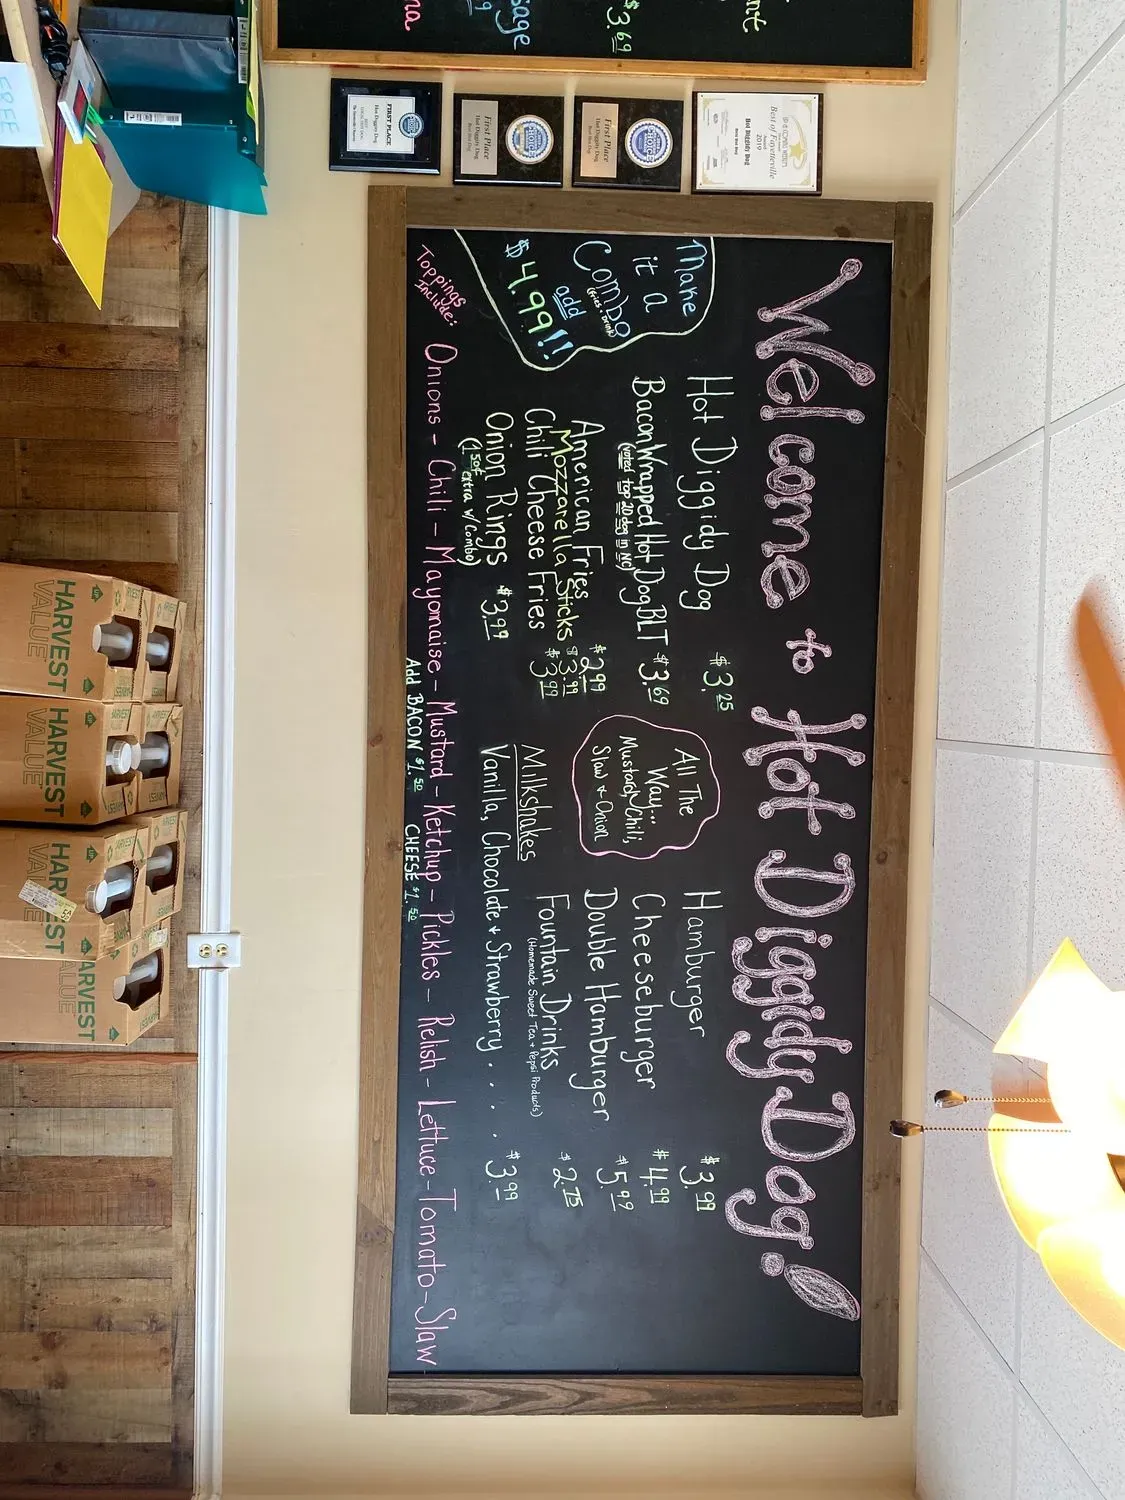 Welcome to Hot Diggidy Dog!
Make
it a
Combo
(fries + drink)
add
$4.99!!
Hot Diggidy Dog $3.25
Bacon Wrapped Hot Dog BLT $3.69
(voted top 20 dog in NC)
American Fries $2.99
Mozzarella Sticks $3.99
Chili Cheese Fries $3.99
Onion Rings $3.99
(1.50¢ extra w/ Combo)
All The
Way...
Mustard, Chili,
Slaw + Onion
Hamburger $3.99
Cheeseburger $4.99
Double Hamburger $5.99
Fountain Drinks $2.75
(Homemade Sweet Tea + Pepsi Products)
Milkshakes
Vanilla, Chocolate + Strawberry.... $3.99
Toppings
Include:
Onions - Chili - Mayonaise - Mustard - Ketchup - Pickles - Relish - Lettuce - Tomato - Slaw
Add BACON $1.50 CHEESE $1.50
$3.69
sage
Best of Fayetteville
2019
Hot Diggidy Dog
First Place
Hot Diggidy Dog
CHOICE
First Place
Hot Diggidy Dog
Best Hot Dog
FIRST PLACE
Hot Diggidy Dog
FREE
HARVEST
VALUE
HARVEST
VALUE
HARVEST
VALUE
HARVEST
VALUE